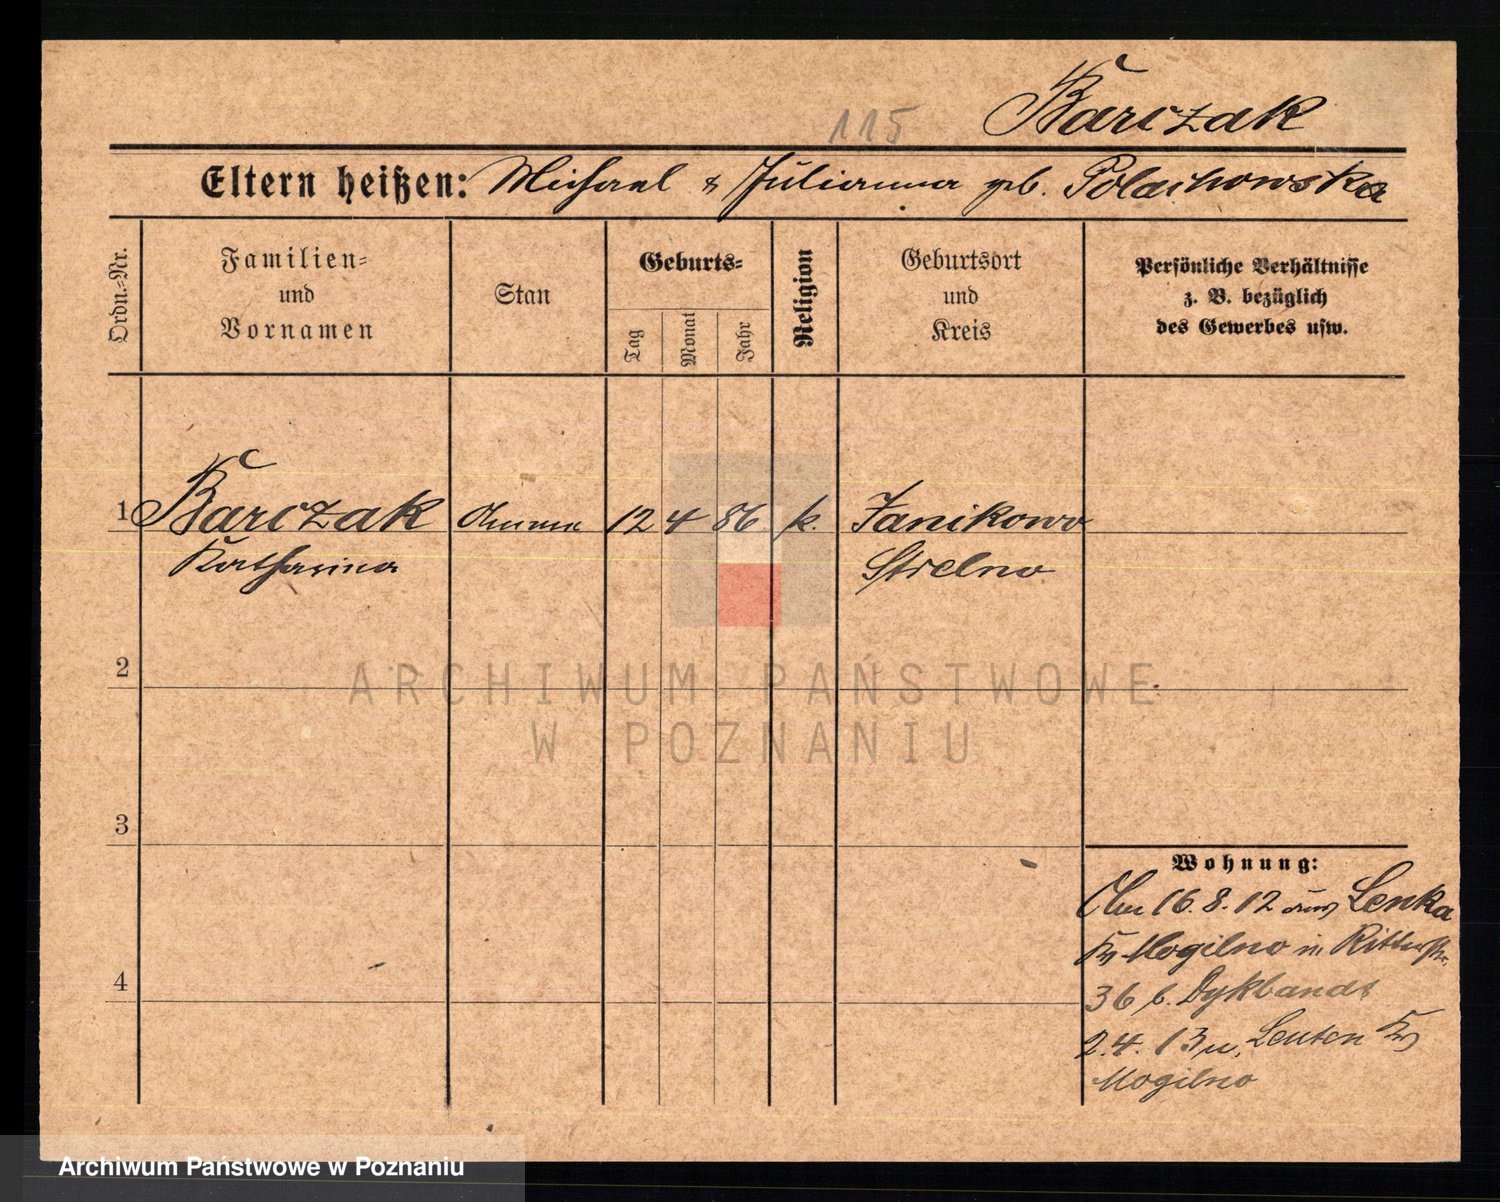 115 Barczak
Eltern heißen: Michael & Julianna geb. Polachowska
Ordn.=Nr.
Familien=
und
Vornamen
Stan
Geburts=
Tag
Monat
Jahr
Religion
Geburtsort
und
Kreis
Persönliche Verhältnisse
z. B. bezüglich
des Gewerbes usw.
1 Barczak 12 4 86 k. Janikowo
Katharina Strelno
2
ARCHIWUM PAŃSTWOWE
W POZNANIU
3
4
Wohnung:
Am 16.8.12 aus Lenka
Kr Mogilno in Ritterstr.
36 b. Dykbandt
2.4.13 n. Kr
Mogilno
Archiwum Państwowe w Poznaniu